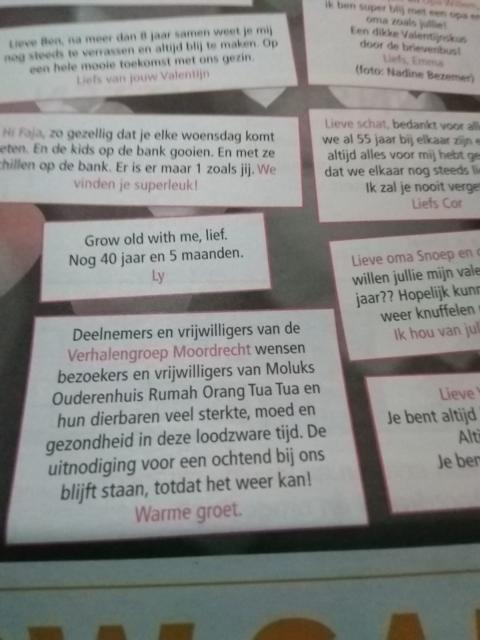 Lieve Ben, na meer dan 8 jaar samen weet je mij
nog steeds te verrassen en altijd blij te maken. Op
een hele mooie toekomst met ons gezin.
Liefs van jouw Valentijn
ik ben super blij met een opa en
oma zoals jullie!
Een dikke Valentijnskus
door de brievenbus!
Liefs, Emma
(foto: Nadine Bezemer)
Hi Faja, zo gezellig dat je elke woensdag komt
eten. En de kids op de bank gooien. En met ze
chillen op de bank. Er is er maar 1 zoals jij. We
vinden je superleuk!
Lieve schat, bedankt voor
we al 55 jaar bij elkaar zijn
altijd alles voor mij hebt
dat we elkaar nog steeds
Ik zal je nooit
Liefs Cor
Grow old with me, lief.
Nog 40 jaar en 5 maanden.
Ly
Lieve oma Snoep en
willen jullie mijn
jaar?? Hopelijk
weer knuffelen
Ik hou van
Deelnemers en vrijwilligers van de
Verhalengroep Moordrecht wensen
bezoekers en vrijwilligers van Moluks
Ouderenhuis Rumah Orang Tua Tua en
hun dierbaren veel sterkte, moed en
gezondheid in deze loodzware tijd. De
uitnodiging voor een ochtend bij ons
blijft staan, totdat het weer kan!
Warme groet.
Lieve
Je bent altijd
Je